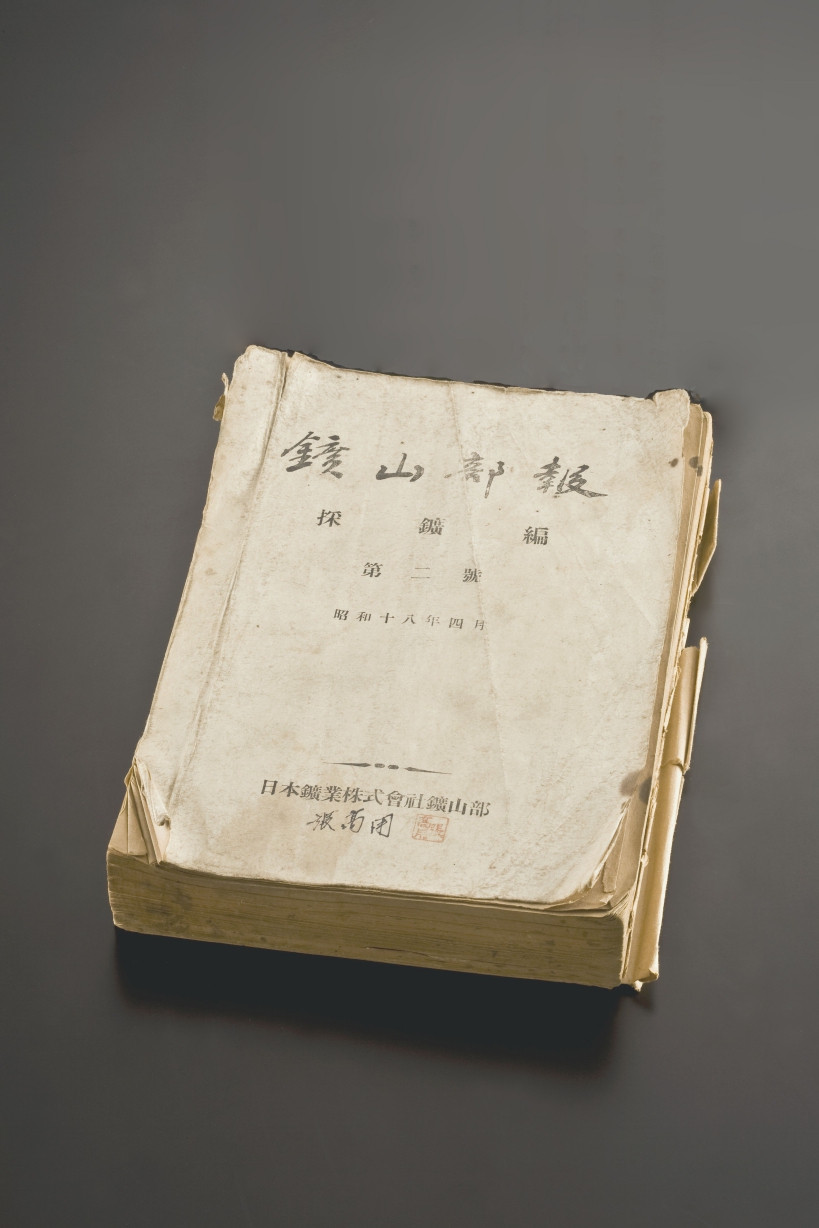 鑛山部報
採鑛編
第二號
昭和十八年四月
日本鑛業株式會社鑛山部